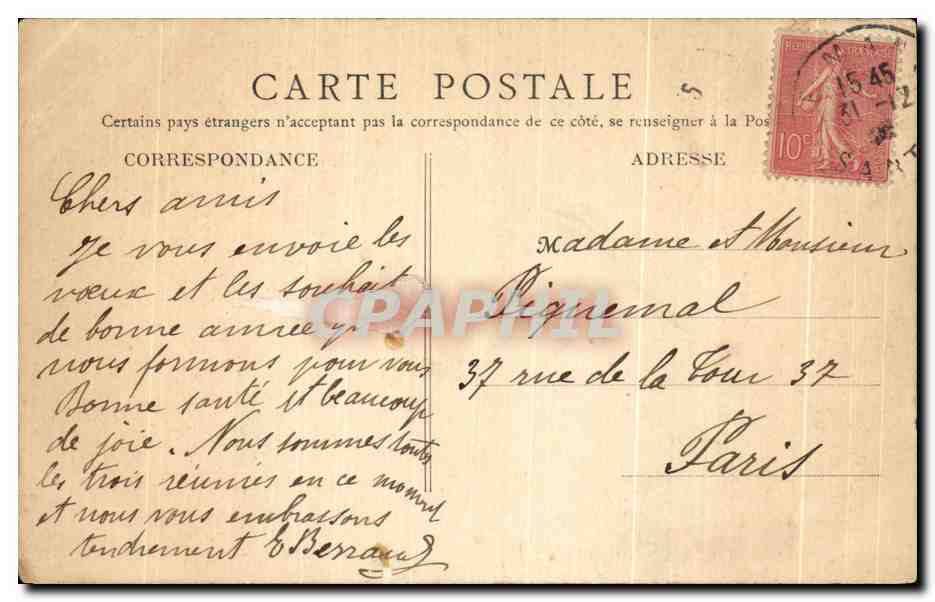 CARTE POSTALE
Certains pays étrangers n'acceptent pas la correspondance de ce côté, se renseigner à la Pos
CORRESPONDANCE
Chers amis
Je vous envoie les
vœux et les souhait
de bonne année q
nous formons pour vous
Bonne santé et beaucoup
de joie. Nous sommes toutes
les trois réunies en ce moment
et nous vous embrassons
tendrement
ADRESSE
Madame et Monsieur
Piquemal
37 rue de la Tour 37
Paris
10c
15 45
31 -12
CPAPHIL